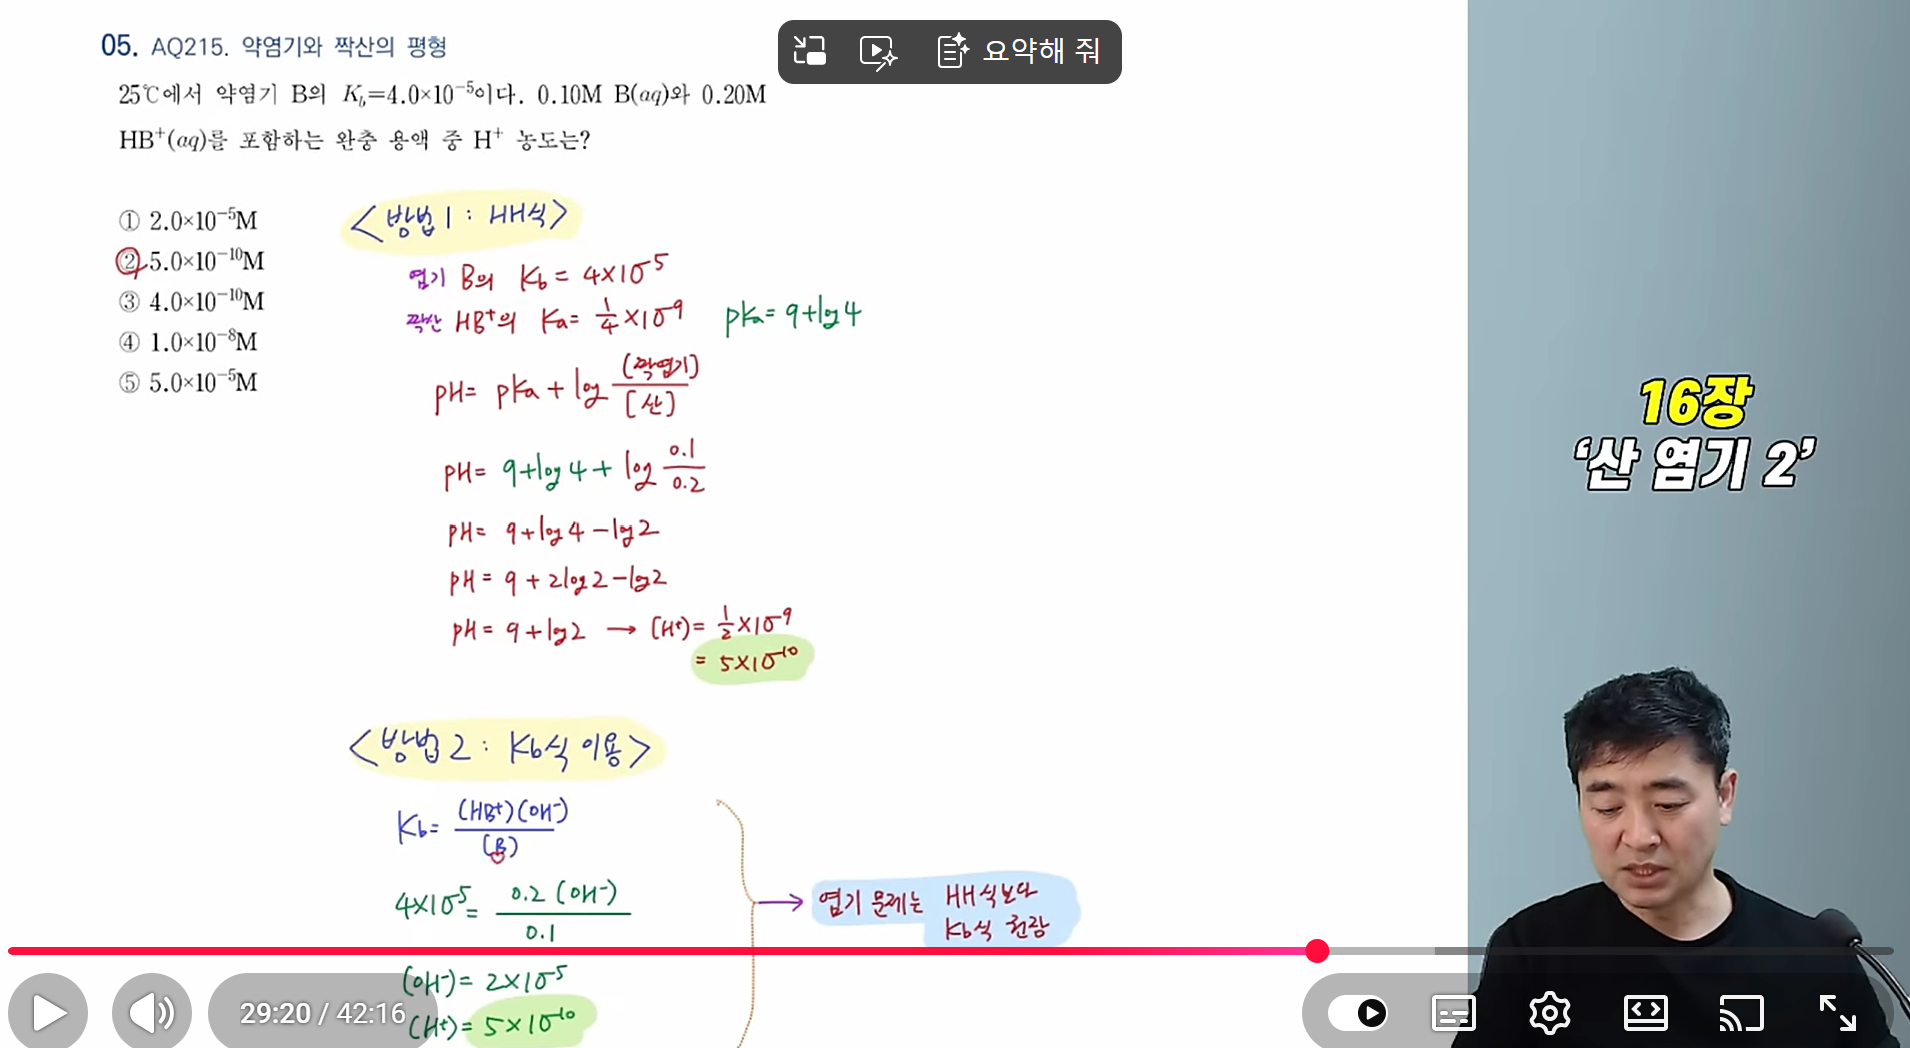 05. AQ215. 약염기와 짝산의 평형
25℃에서 약염기 B의 K_b=4.0×10⁻⁵이다. 0.10M B(aq)와 0.20M
HB⁺(aq)를 포함하는 완충 용액 중 H⁺ 농도는?
① 2.0×10⁻⁵M
② 5.0×10⁻¹⁰M
③ 4.0×10⁻¹⁰M
④ 1.0×10⁻⁸M
⑤ 5.0×10⁻⁵M
<방법1 : HH식>
염기 B의 Kb = 4×10⁻⁵
짝산 HB⁺의 Ka = 1/4 ×10⁻⁹ pKa = 9+log4
pH = pKa + log [짝염기]/[산]
pH = 9+log4 + log 0.1/0.2
pH = 9+log4 -log2
pH = 9 + 2log2 -log2
pH = 9 + log2 → [H⁺] = 1/2 ×10⁻⁹
= 5×10⁻¹⁰
<방법2 : Kb식 이용>
Kb = [HB⁺][OH⁻]/[B]
4×10⁻⁵ = 0.2 [OH⁻]/0.1
[OH⁻] = 2×10⁻⁵
[H⁺] = 5×10⁻¹⁰
→ 염기 문제는 HH식보다
Kb식 권장
요약해 줘
16장
‘산 염기 2’
29:20 / 42:16